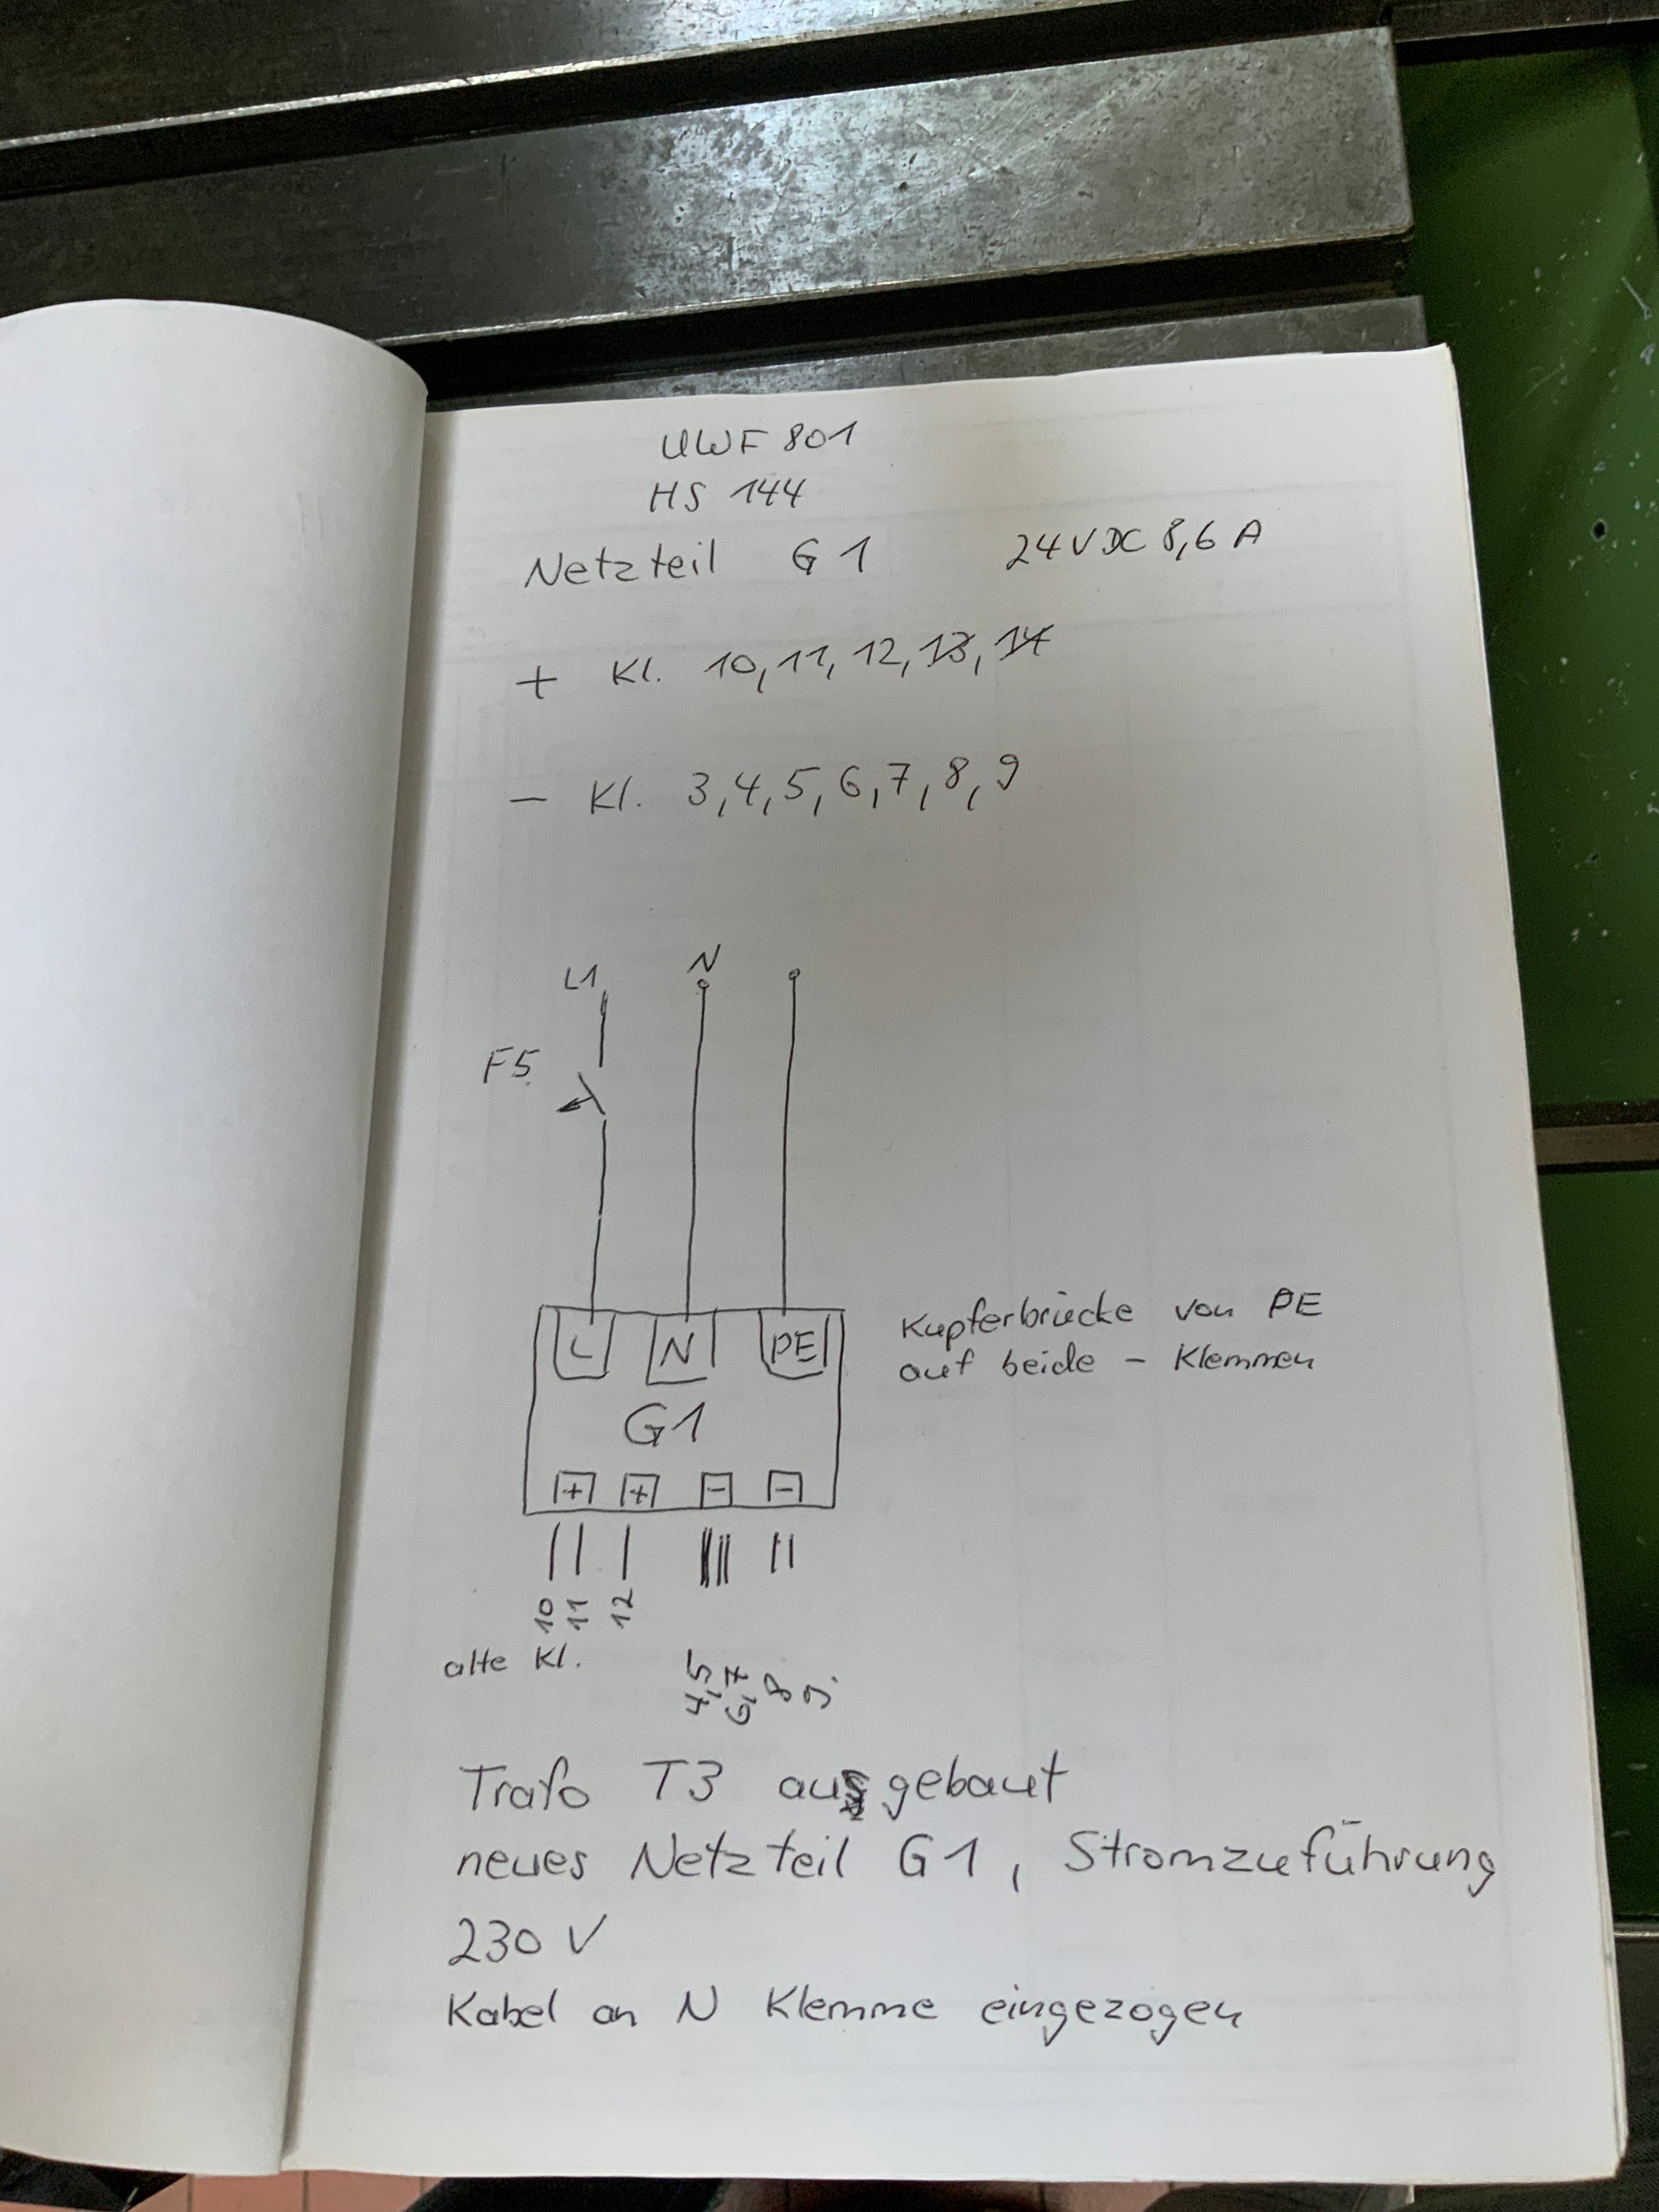 UWF 801
HS 144
Netzteil G1 24VDC 8,6 A
+ Kl. 10, 11, 12, 13, 14
- Kl. 3, 4, 5, 6, 7, 8, 9
L1 N
F5
L N PE
Kupferbrücke von PE
auf beide - Klemmen
G1
+ + - -
10 11 12
alte Kl.
4,5 6,7 8 9.
Trafo T3 ausgebaut
neues Netzteil G1, Stromzuführung
230 V
Kabel an N Klemme eingezogen